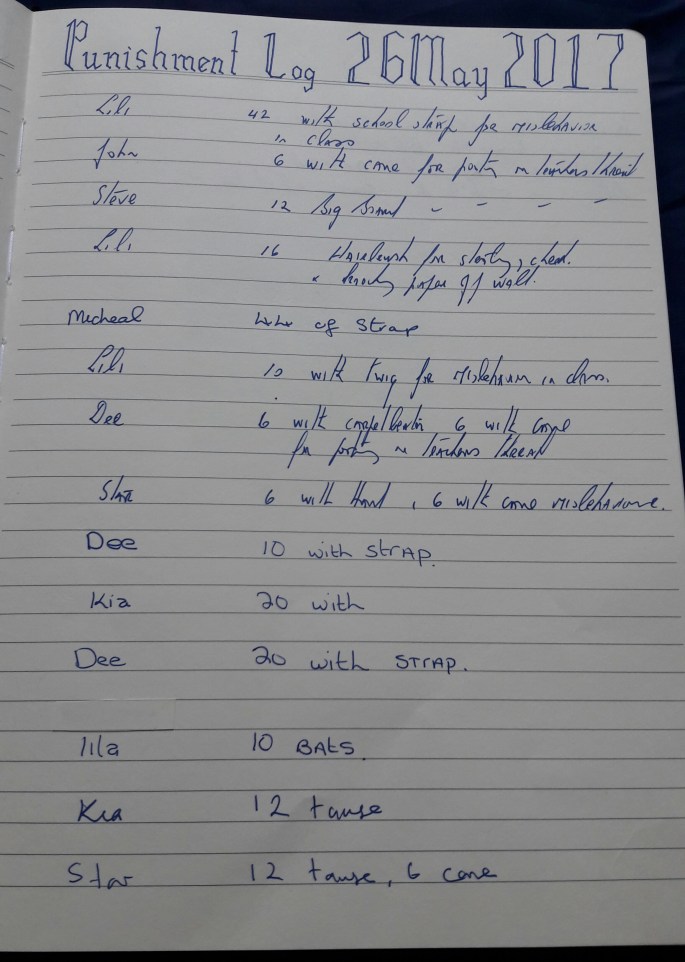 Punishment Log 26 May 2017
Lili 42 with school strap for misbehavior
in class
John 6 with cane for on teachers
Steve 12 Big - - - -
Lili 16 Hairbrush for
paper off wall.
Micheal of Strap
Lili 10 with twig for misbehaviour in class.
Dee 6 with 6 with cane
for on teachers
Star 6 with Hand, 6 with cane misbehaviour.
Dee 10 with STRAP.
Kia 20 with
Dee 20 with STRAP.
lila 10 BATS.
Kia 12 tawse
Star 12 tawse, 6 cane